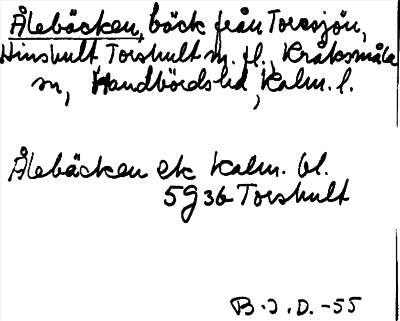 Ålebäcken, bäck från Torssjön,
Hinshult, Torshult m. fl., Kråksmåla
sn, Handbörds hd, Kalm. l.
Ålebäcken ek Kalm. bl.
5G36 Torshult
B.J.D. -55